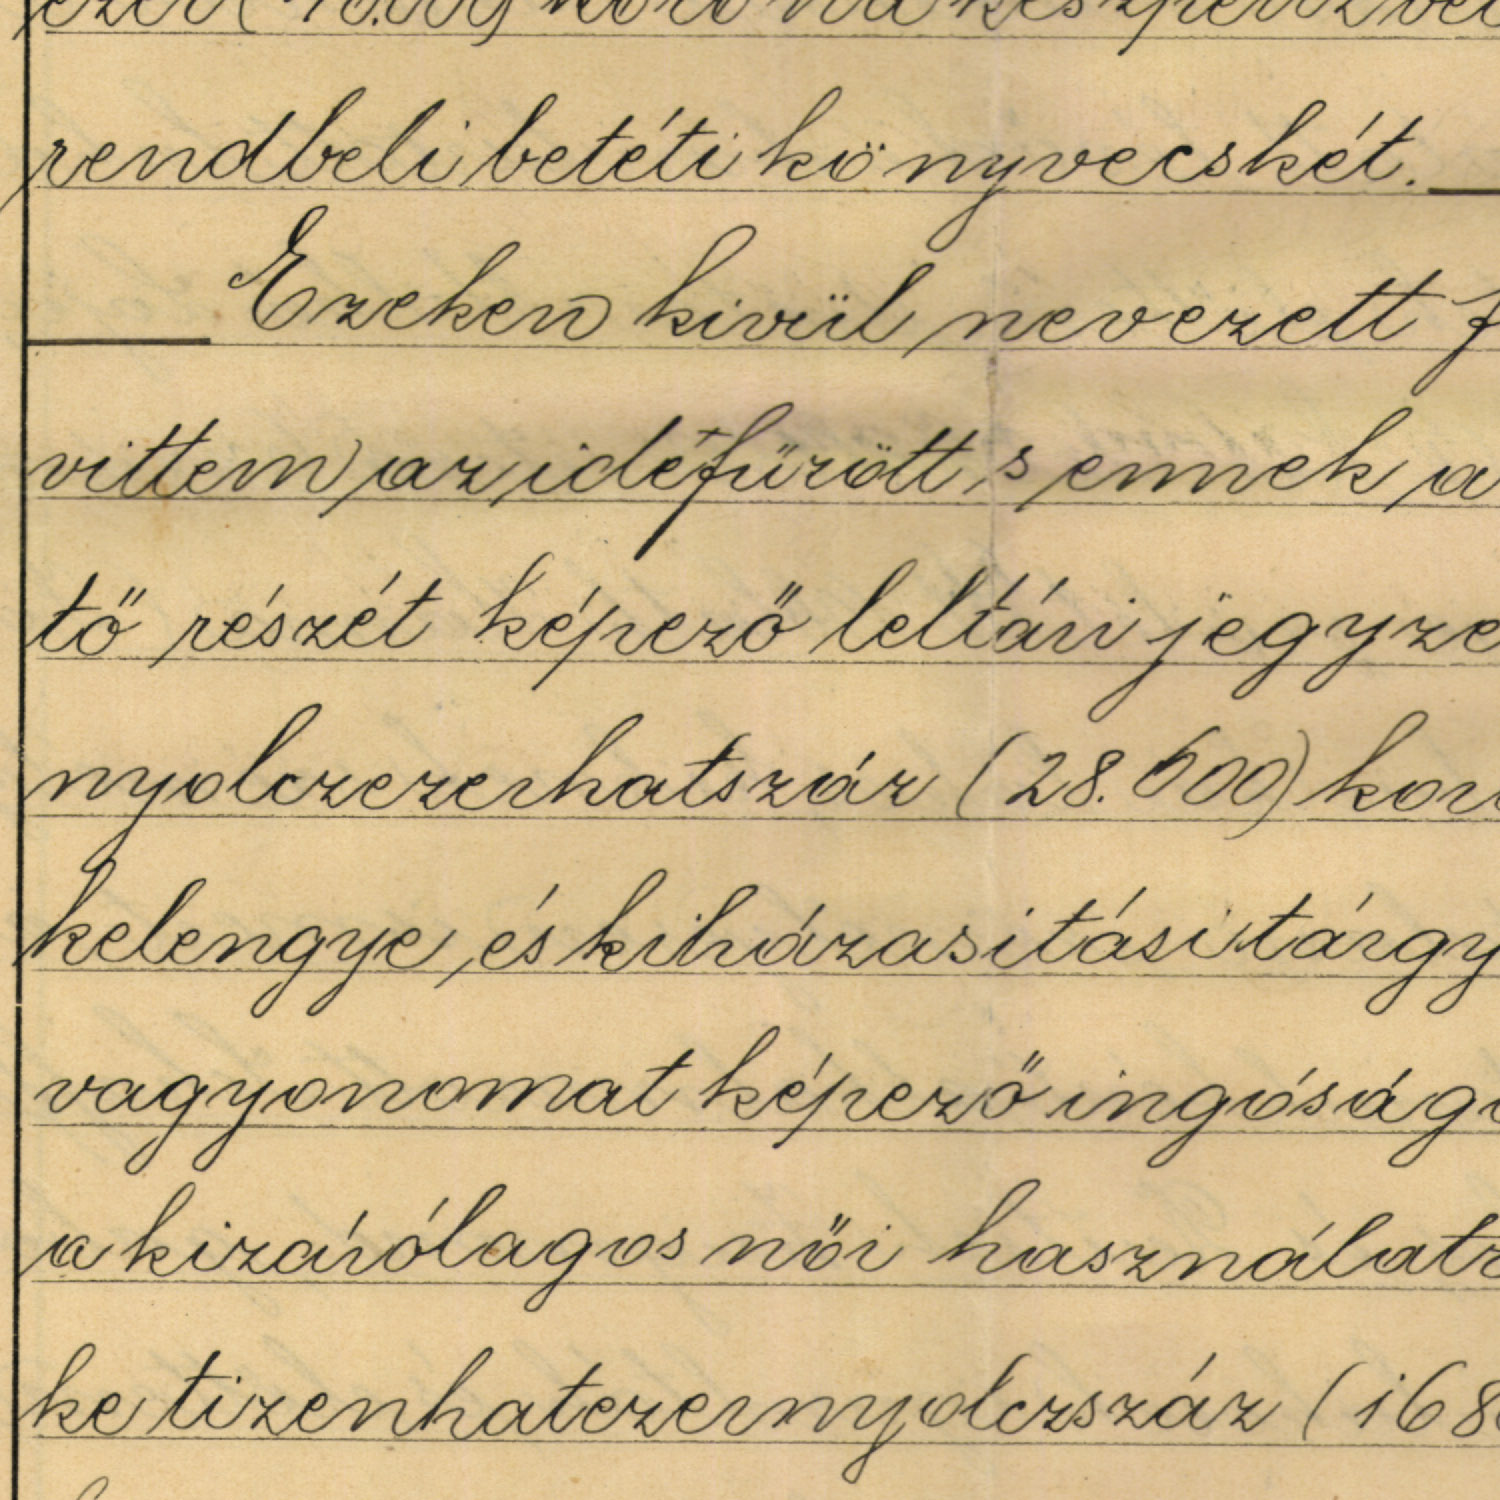 korona készpénzbe
rendbeli betéti könyvecskét.
Ezeken kivül nevezett f
vittem az idefűzött, s ennek a
tő részét képező leltári jegyze
nyolczezerhatszáz (28.600) koro
kelengye, és kiházasitási tárgy
vagyonomat képező ingóságo
a kizárólagos női használatr
ke tizenhatezernyolczszáz (168